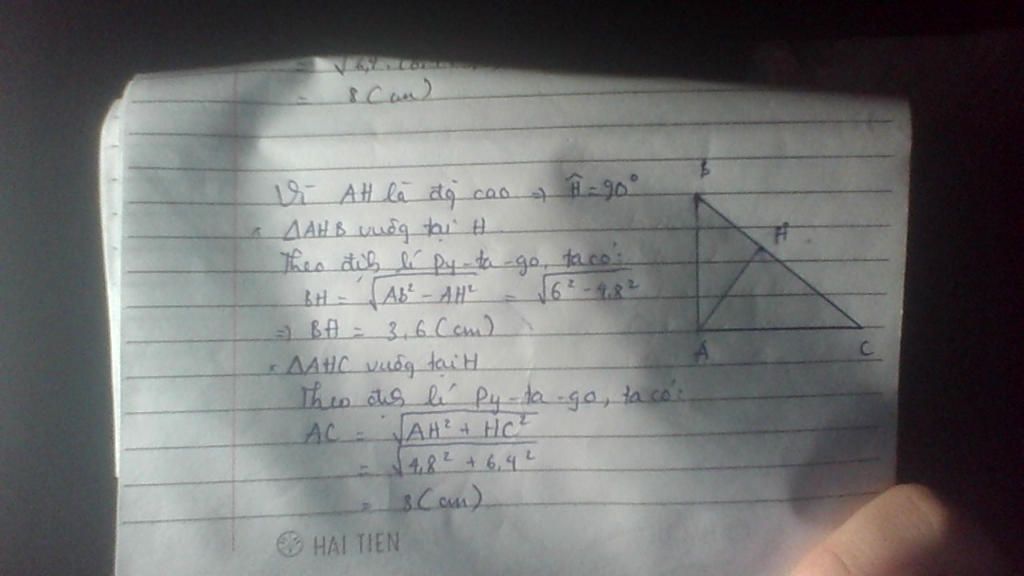 = 8 (cm)
Vì AH là độ cao => Ĥ = 90°
ΔAHB vuông tại H
Theo định lí Py-ta-go, ta có:
BH = √Ab² - AH² = √6² - 4,8²
=> BH = 3,6 (cm)
ΔAHC vuông tại H
Theo định lí Py-ta-go, ta có:
AC = √AH² + HC²
= √4,8² + 6,4²
= 8 (cm)
B
H
A
C
HAI TIEN